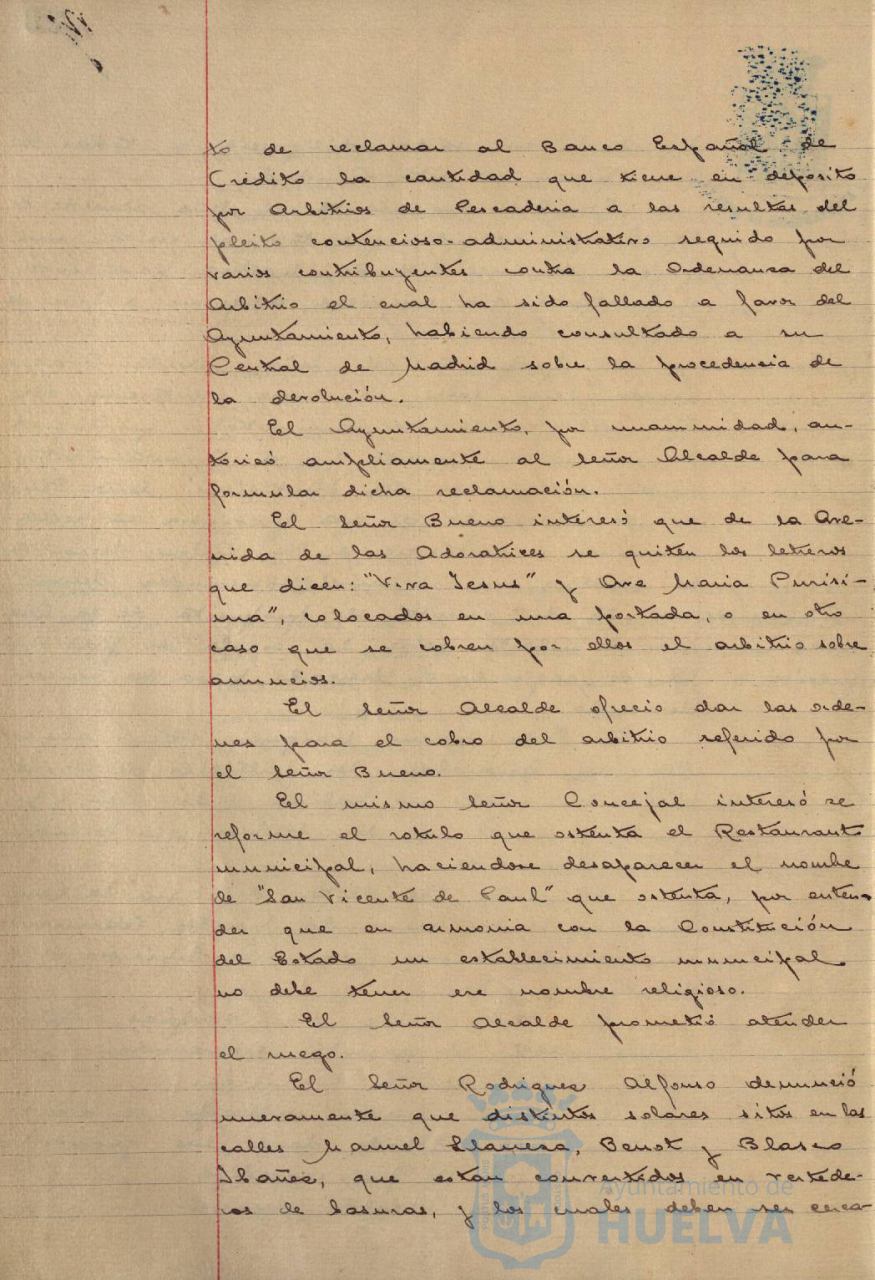 to de reclamar al Banco Español de
Crédito la cantidad que tiene en depósito
por Arbitrios de Pescaderia a las resultas del
pleito contencioso-administrativo seguido por
varios contribuyentes contra la Ordenanza del
Arbitrio el cual ha sido fallado a favor del
Ayuntamiento, habiendo consultado a su
Central de Madrid sobre la procedencia de
la devolución.
El Ayuntamiento, por unanimidad, au-
torizó ampliamente al señor Alcalde para
formular dicha reclamación.
El señor Bueno interesó que de la Ave-
nida de las Adoratrices se quiten los letreros
que dicen: "Viva Jesus" y Ave Maria Purisi-
ma", colocados en una portada, o en otro
caso que se cobren por ellos el arbitrio sobre
anuncios.
El señor Alcalde ofrecio dar las orde-
nes para el cobro del arbitrio referido por
el señor Bueno.
El mismo señor Concejal interesó se
reforme el rotulo que ostenta el Restaurant
municipal, haciendose desaparecer el nombre
de "San Vicente de Paul" que ostenta, por enten-
der que en armonia con la Constitución
del Estado un establecimiento municipal
no debe tener ese nombre religioso.
El señor Alcalde prometió atender
el ruego.
El señor Rodriguez Alfonso denunció
nuevamente que distintos solares sitos en las
calles Manuel Llaneza, Benot y Blasco
Ibañez, que estan convertidos en vertede-
ros de basuras, y los cuales deben ser cerca-
Ayuntamiento de
HUELVA